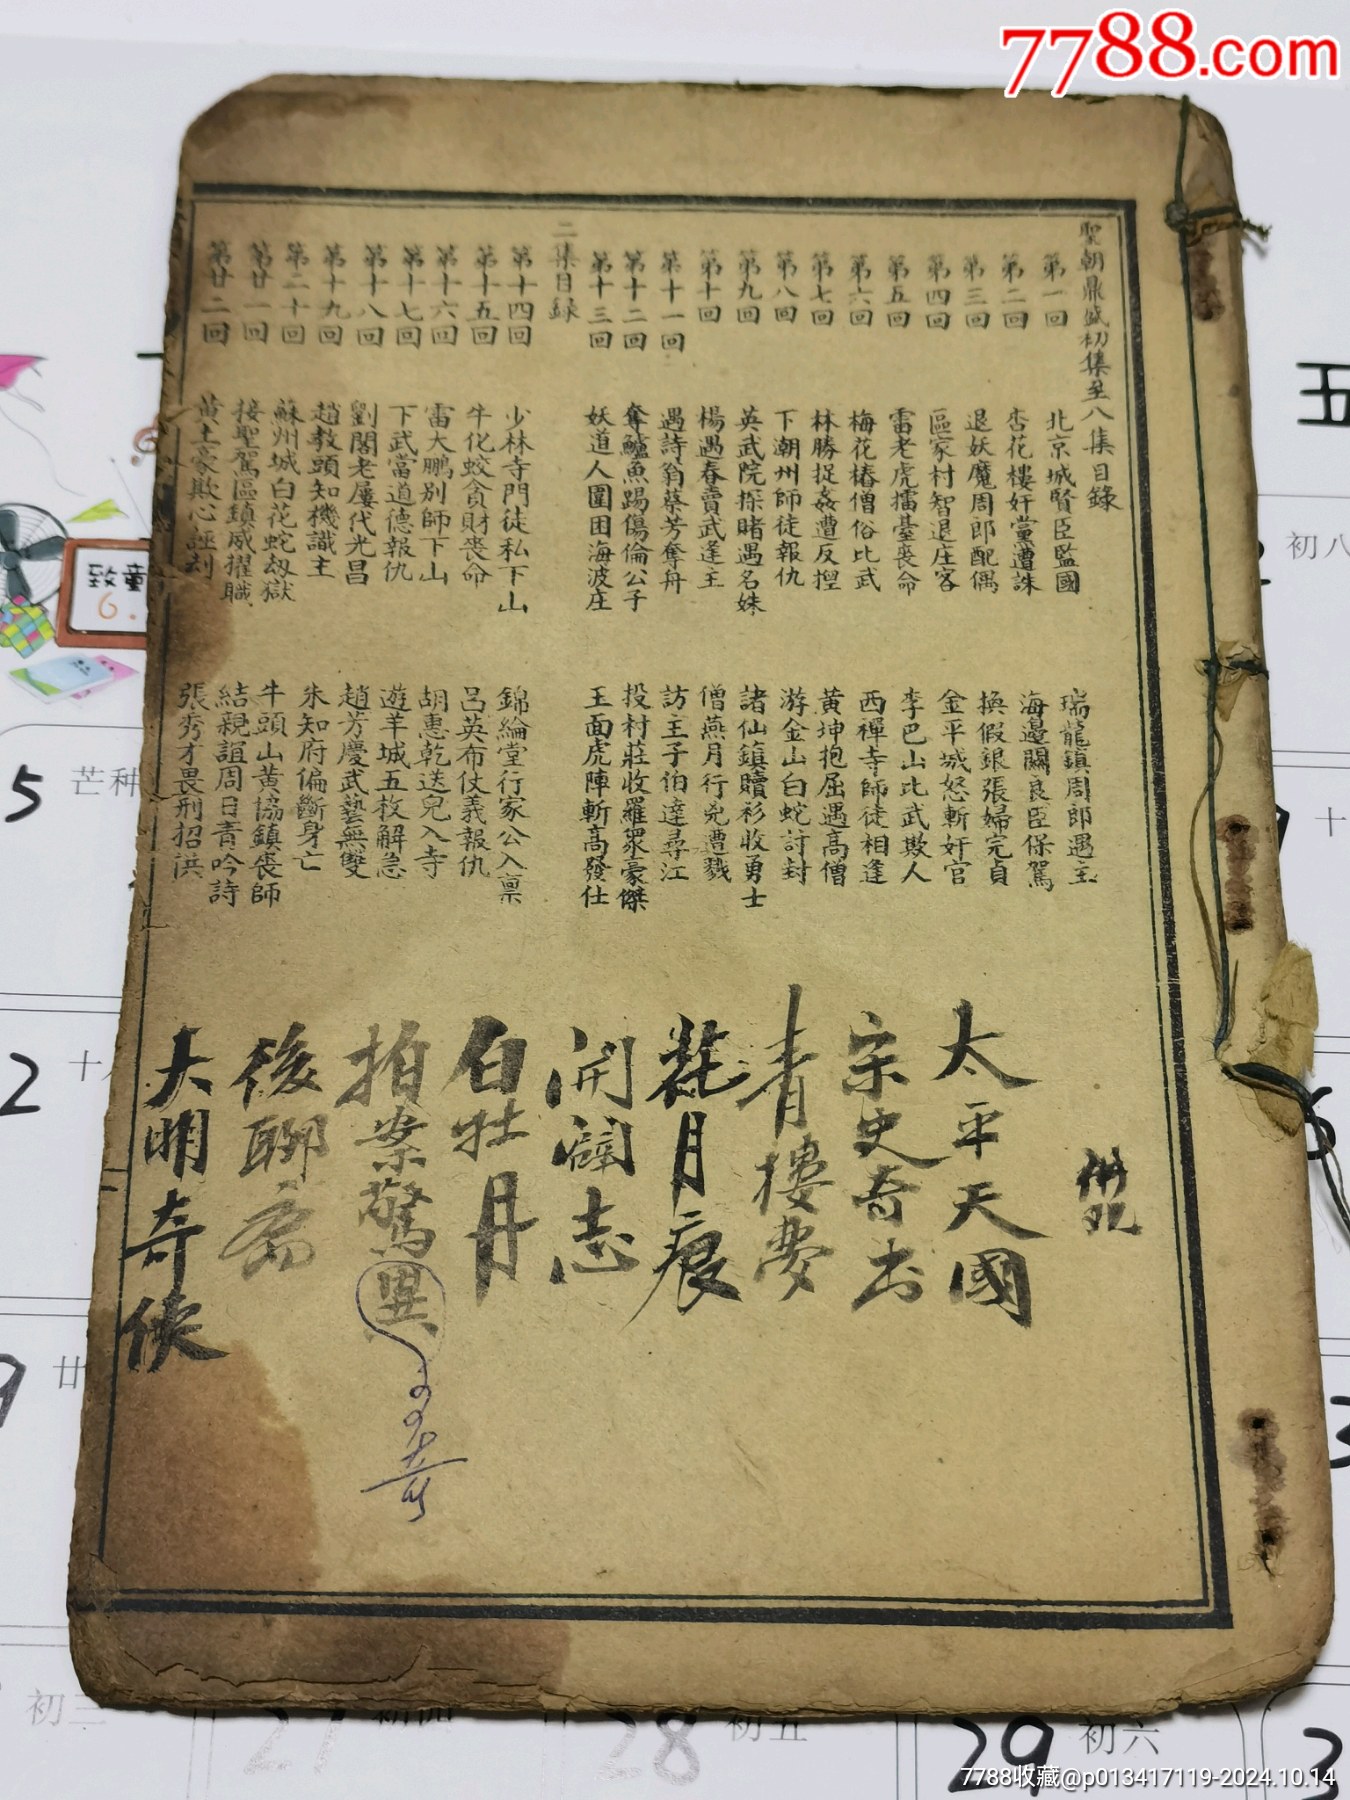 7788.com
聖朝鼎盛初集至八集目錄
第一回 北京城賢臣監國 瑞龍鎮周郎遇主
第二回 杏花樓奸黨遭誅 海邊關良臣保駕
第三回 退妖魔周郎配偶 換假銀張婦完貞
第四回 區家村智退庄客 金平城怒斬奸官
第五回 雷老虎擂臺喪命 李巴山比武欺人
第六回 梅花樁僧俗比武 西禪寺師徒相逢
第七回 林勝捉姦遭反控 黃坤抱屈遇高僧
第八回 下潮州師徒報仇 游金山白蛇討封
第九回 英武院探賭遇名姝 諸仙鎮贖衫收勇士
第十回 楊遇春賣武逢王 僧燕月行兇遭戮
第十一回 遇詩翁蔡芳奪舟 訪主子伯達尋江
第十二回 奪鱸魚踢傷倫公子 投村莊收羅眾豪傑
第十三回 妖道人圍困海波庄 玉面虎陣斬高發仕
二集目錄
第十四回 少林寺門徒私下山 錦綸堂行家公入禀
第十五回 牛化蛟貪財喪命 呂英布仗義報仇
第十六回 雷大鵬別師下山 胡惠乾送兒入寺
第十七回 下武當道德報仇 遊羊城五枚解急
第十八回 劉閣老屢代光昌 趙芳慶武藝無雙
第十九回 趙教頭知機識主 朱知府偏斷身亡
第二十回 蘇州城白花蛇劫獄 牛頭山黃協鎮喪師
第廿一回 接聖駕區鎮威擢職 結親誼周日青吟詩
第廿二回 黃土豪欺心誣刦 張秀才畏刑招洪
太平天國
宗史奇书
青樓夢
花月痕
開闢志
白牡丹
拍案驚異
奇
後聊斋
大明奇俠
五
初八
致童
6.
5
芒种
十
2
十八
9
廿
初三
27
初四
28
初五
29
初六
3
7788收藏@p013417119-2024.10.14